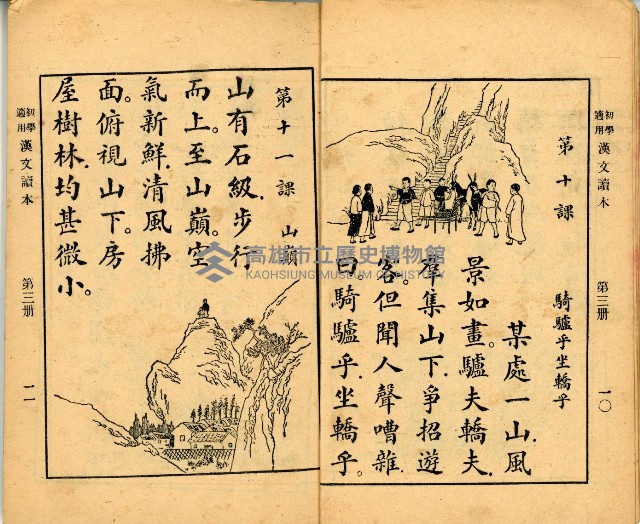 初學適用 漢文讀本 第三册 一〇
第十課 騎驢乎坐轎乎
某處一山.風
景如畫。驢夫轎夫.
羣集山下.爭招遊
客.但聞人聲嘈雜.
曰騎驢乎.坐轎乎。
第十一課 山巔
山有石級.步行
而上。至山巔.空
氣新鮮.清風拂
面。俯視山下。房
屋樹林.均甚微小。
初學適用 漢文讀本 第三册 一一
高雄市立歷史博物館
KAOHSIUNG MUSEUM OF HISTORY